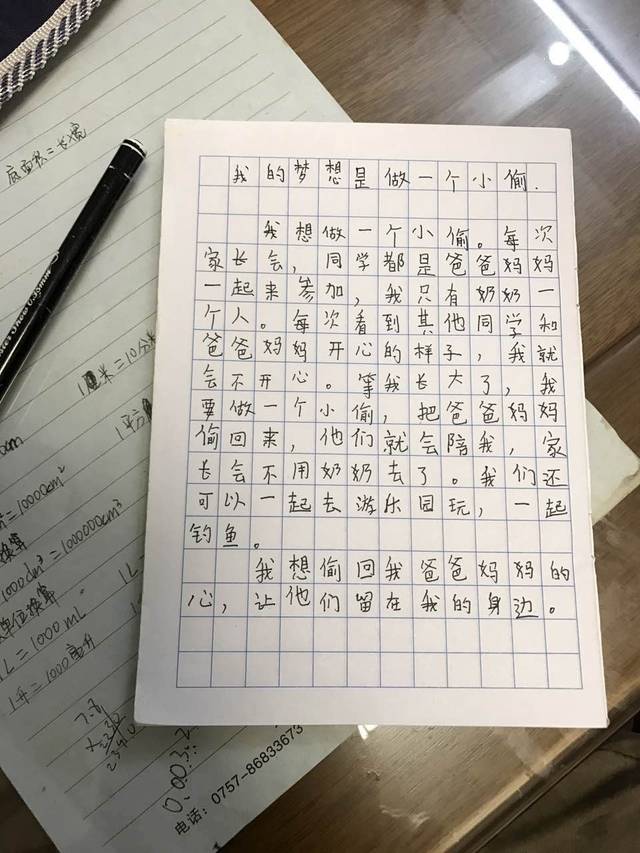 我的梦想是做一个小偷.
我想做一个小偷。每次
家长会，同学都是爸爸妈妈
一起来参加，我只有奶奶一
个人。每次看到其他同学和
爸爸妈妈开心的样子，我就
会不开心。等我长大了，我
要做一个小偷，把爸爸妈妈
偷回来，他们就会陪我，家
长会不用奶奶去了。我们还
可以一起去游乐园玩，一起
钓鱼。
我想偷回我爸爸妈妈的
心，让他们留在我的身边。
底面积=长×宽
=10分米
1平方
=10000cm²
=1000000cm³
单位换算
1L=1000mL
1升=1000毫升
电话：0757-86833673